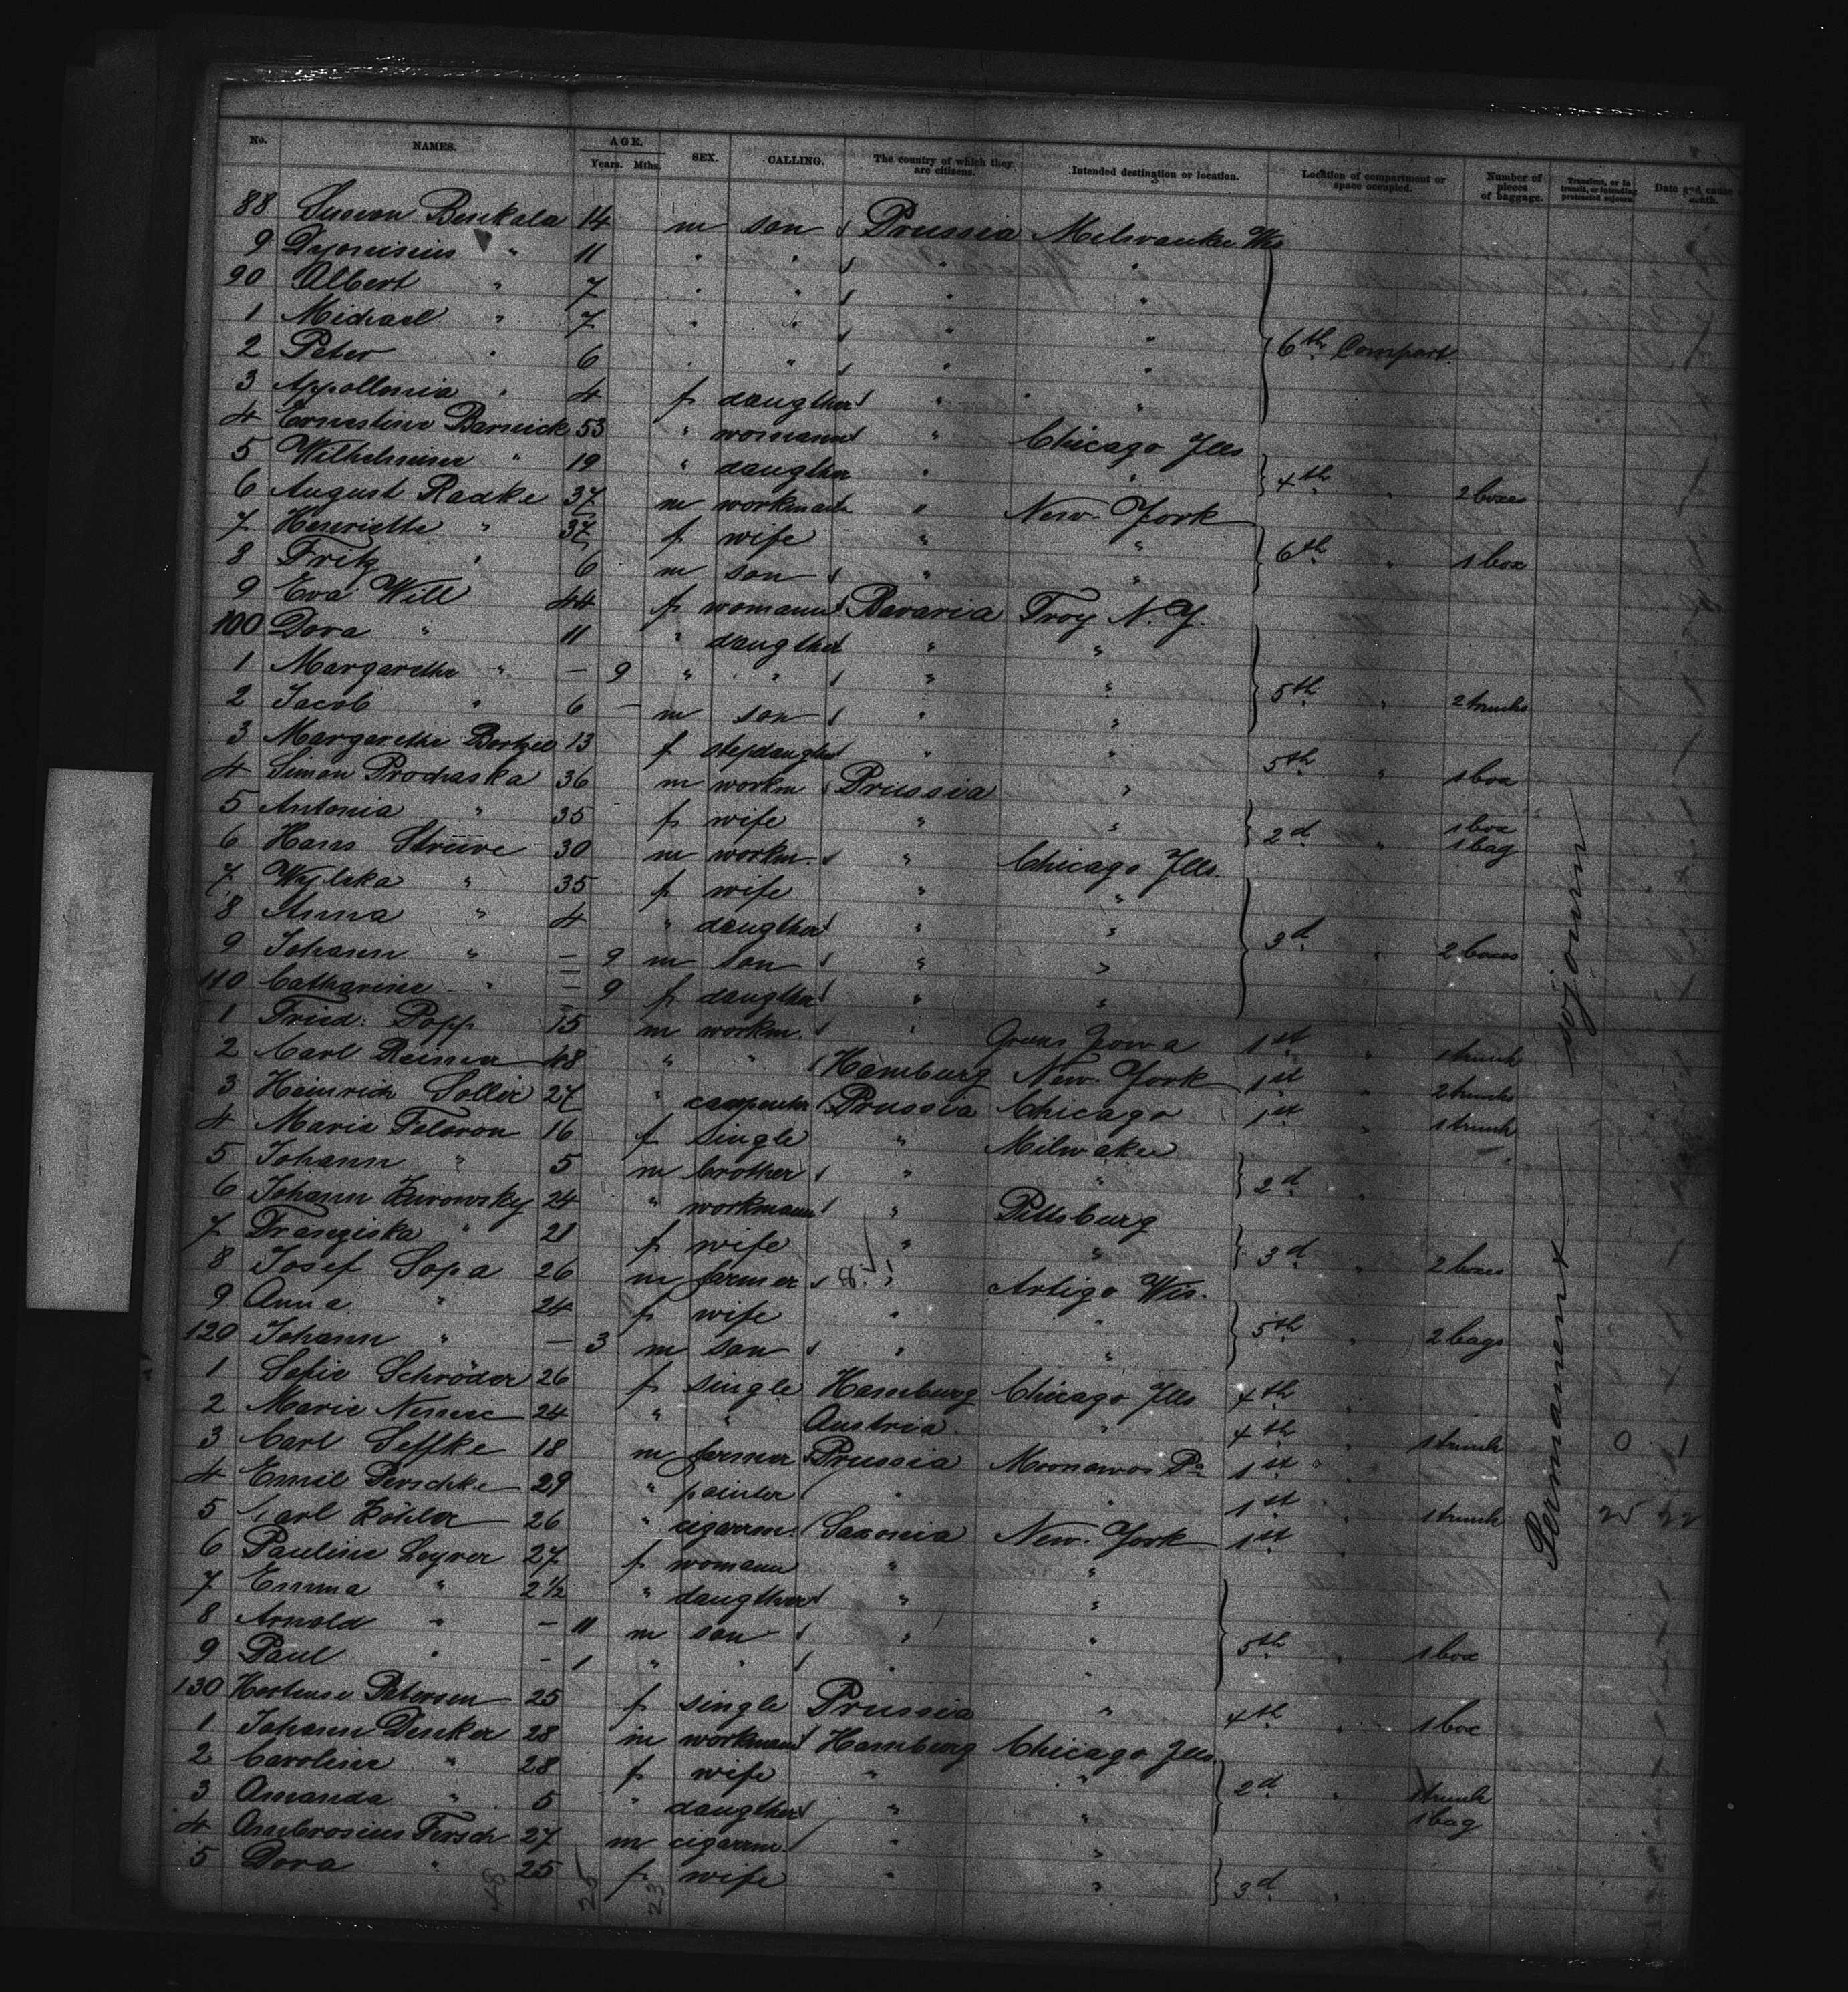 No. NAMES. AGE. Years. Mths. SEX. CALLING. The country of which they are citizens. Intended destination or location. Location of compartment or space occupied. Number of pieces of baggage. Transient, or in transit, or intending protracted sojourn. Date and cause death.
88 Simon 14 m son Prussia Milwaukee Wis
9 Dyonisius " 11 " " " "
90 Albert " 7 " " " "
1 Michael " 7 " " " "
2 Peter " 6 " " " " 6th Compart.
3 Appollonia " 4 f daugther " "
4 Ernestine Barnick 53 " womann " Chicago Jlls
5 Wilhelmine " 19 " daugther " " 4th " 2 boxes
6 August Radke 37 m workmann " New-York
7 Henriette " 37 f wife " " 6th " 1 box
8 Fritz " 6 m son " "
9 Eva Will 44 f womann Bavaria Troy N.Y.
100 Dora " 11 " daugther " "
1 Margarethe " – 9 " " " " 5th " 2 trunks
2 Jacob " 6 – m son " "
3 Margarethe 13 f stepdaugther " " 5th " 1 box
4 Simon Prochaska 36 m workm Prussia "
5 Antonia " 35 f wife " " 2d " 1 box 1 bag
6 Hans Strüve 30 m workm. " Chicago Jlls.
7 " 35 f wife " "
8 Anna " 4 " daugther " " 3d " 2 boxes
9 Johann " – 9 m son " "
110 Catharine " – 9 f daugther " "
1 Fried: Popp 15 m workm. " Jowa 1st " 1 trunk
2 Carl Reimer 48 " " Hamburg New-York 1st " 2 trunks
3 Heinrich Soller 27 " carpenter Prussia Chicago 1st " 1 trunk
4 Marie 16 f single " Milwakee
5 Johann " 5 m brother " " 2d "
6 Johann Zurowsky 24 " workmann " Pittsburg
7 Franziska " 21 f wife " " 3d " 2 boxes
8 Josef Sopa 26 m farmer " Artigo Wis.
9 Anna " 24 f wife " " 5th " 2 bags
120 Johann " – 3 m son " "
1 Sofie Schröder 26 f single Hamburg Chicago Jlls 4th "
2 Marie Nemec 24 " " Austria " 4th " 1 trunk 0 1
3 Carl Seffke 18 m farmer Prussia Pa 1st "
4 Emil Perschke 29 " painter " " 1st " 1 trunk 25 22
5 Carl Köhler 26 " cigarrm. Saxonia New-York 1st "
6 Pauline 27 f womann " "
7 Emma " 2½ " daugther " "
8 Arnold " – 11 m son " " 5th " 1 box
9 Paul " – 1 " " " "
130 Hortense Petersen 25 f single Prussia " 4th " 1 box
1 Johann Denker 28 m workmann Hamburg Chicago Jlls.
2 Caroline " 28 f wife " " 2d " 1 trunk 1 bag
3 Amanda " 5 " daugther " "
4 Ambrosius Fersch 27 m cigarrm. " "
5 Dora " 25 f wife " " 3d "
48 25 23
Permanent sojourn